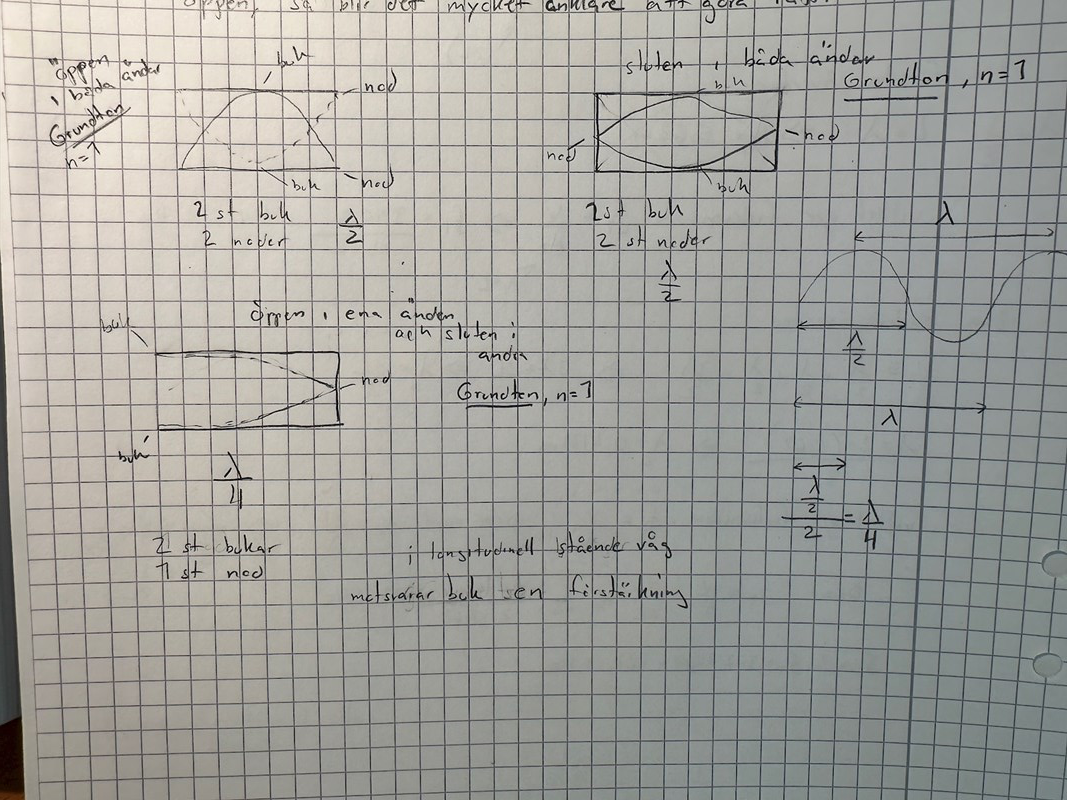 öppen, så blir det mycket enklare att göra
öppen
i båda ändar
Grundton
n=1
buk
nod
buk
nod
2 st buk
2 noder
λ/2
sluten i båda ändar
Grundton, n=1
buk
nod
nod
buk
2st buk
2 st noder
λ/2
λ
λ/2
λ
λ/2
2
= λ/4
Öppen i ena änden
och sluten i
andra
Grundton, n=1
buk
nod
buk
λ/4
2 st bukar
1 st nod
i longitudinell stående våg
motsvarar buk en förstärkning